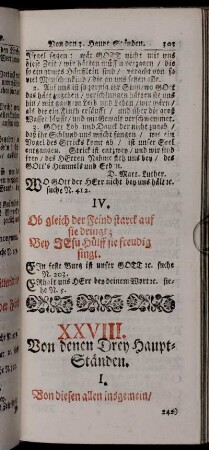 Von den 3. Haupt-Ständen. 303
Israel sagen: wär GOTT nicht mit uns
diese Zeit, wir hätten müst verzagen, die
so ein armes Häuflein sind, veracht von so
viel Menschenkind, die an uns setzen alle.
2. Auf uns ist so zornig ihr Sinn, wo GOtt
hätt das zugeben, verschlungen hätten sie uns
hin, mit ganzem Leib und Leben, wir wärn
als die ein Fluth ersäufft, und über die groß
Wasser läufft, und mit Gewalt verschwemmet.
3. GOtt Lob und Danck der nicht zugab,
daß ihr Schlund uns möcht fangen, wie ein
Vogel des Stricks kommt ab, ist unsre Seel
entgangen. Strick ist entzwey, und wir sind
frey, des HErren Nahme steh uns bey, des
GOtt's Himmels und Erden.
D. Mart. Luther.
WO GOtt der HErr nicht bey uns hält ic.
suche N. 412.
IV.
Ob gleich der Feind starck auf
sie dringt;
Bey JEsu Hülff sie freudig
singt.
Ein feste Burg ist unser GOTT ic. suche
N. 203.
ERhalt uns HErr bey deinem Wort ic. sie-
he N. 5.
XXVIII.
Von denen Drey Haupt-
Ständen.
I.
Von diesen allen insgemein/
242)